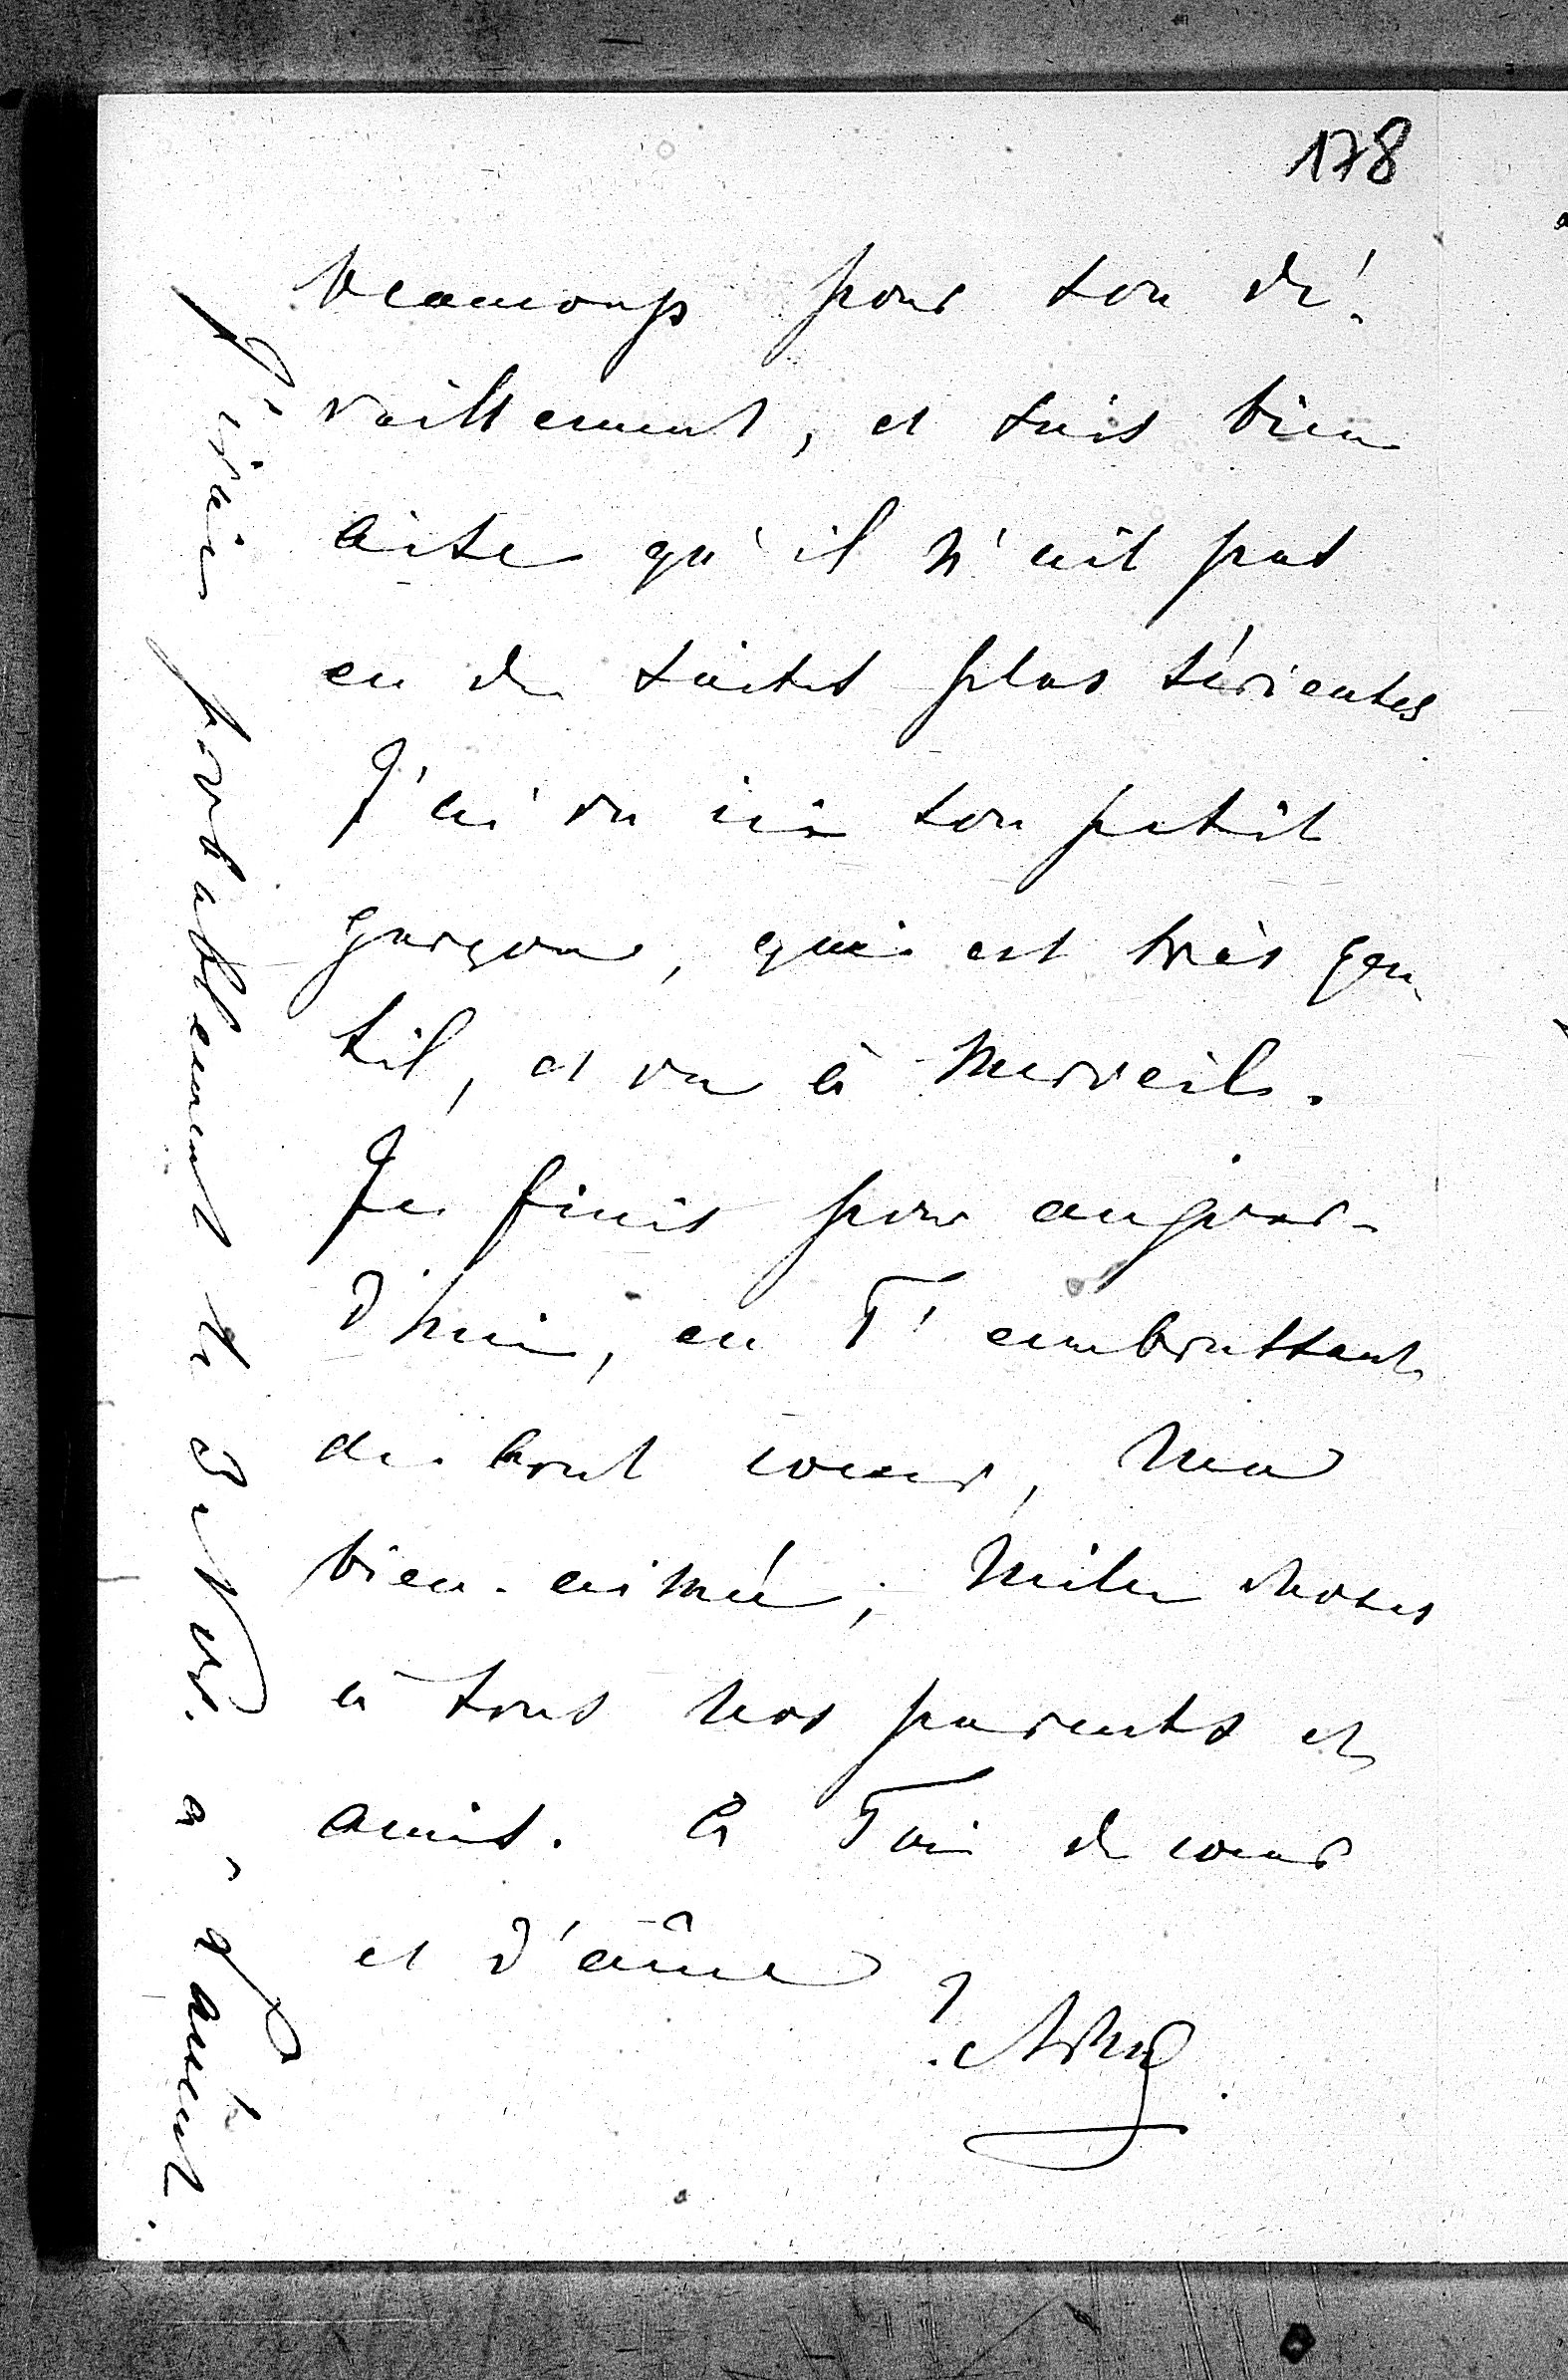 178
beaucoup pour son dé-
raillement, et suis bien
aise qu'il n'ait pas
eu de suites plus sérieuses
J'ai vu ici son petit
garçon, qui est très gen-
til, et va à merveile.
Je finis pour aujour-
d'hui, en T'embrassant
de tout coeur, ma
bien-aimée; mille choses
à tous nos parents et
amis. à Toi de coeur
et d'âme
J'irai probablement le 3 Nov. à